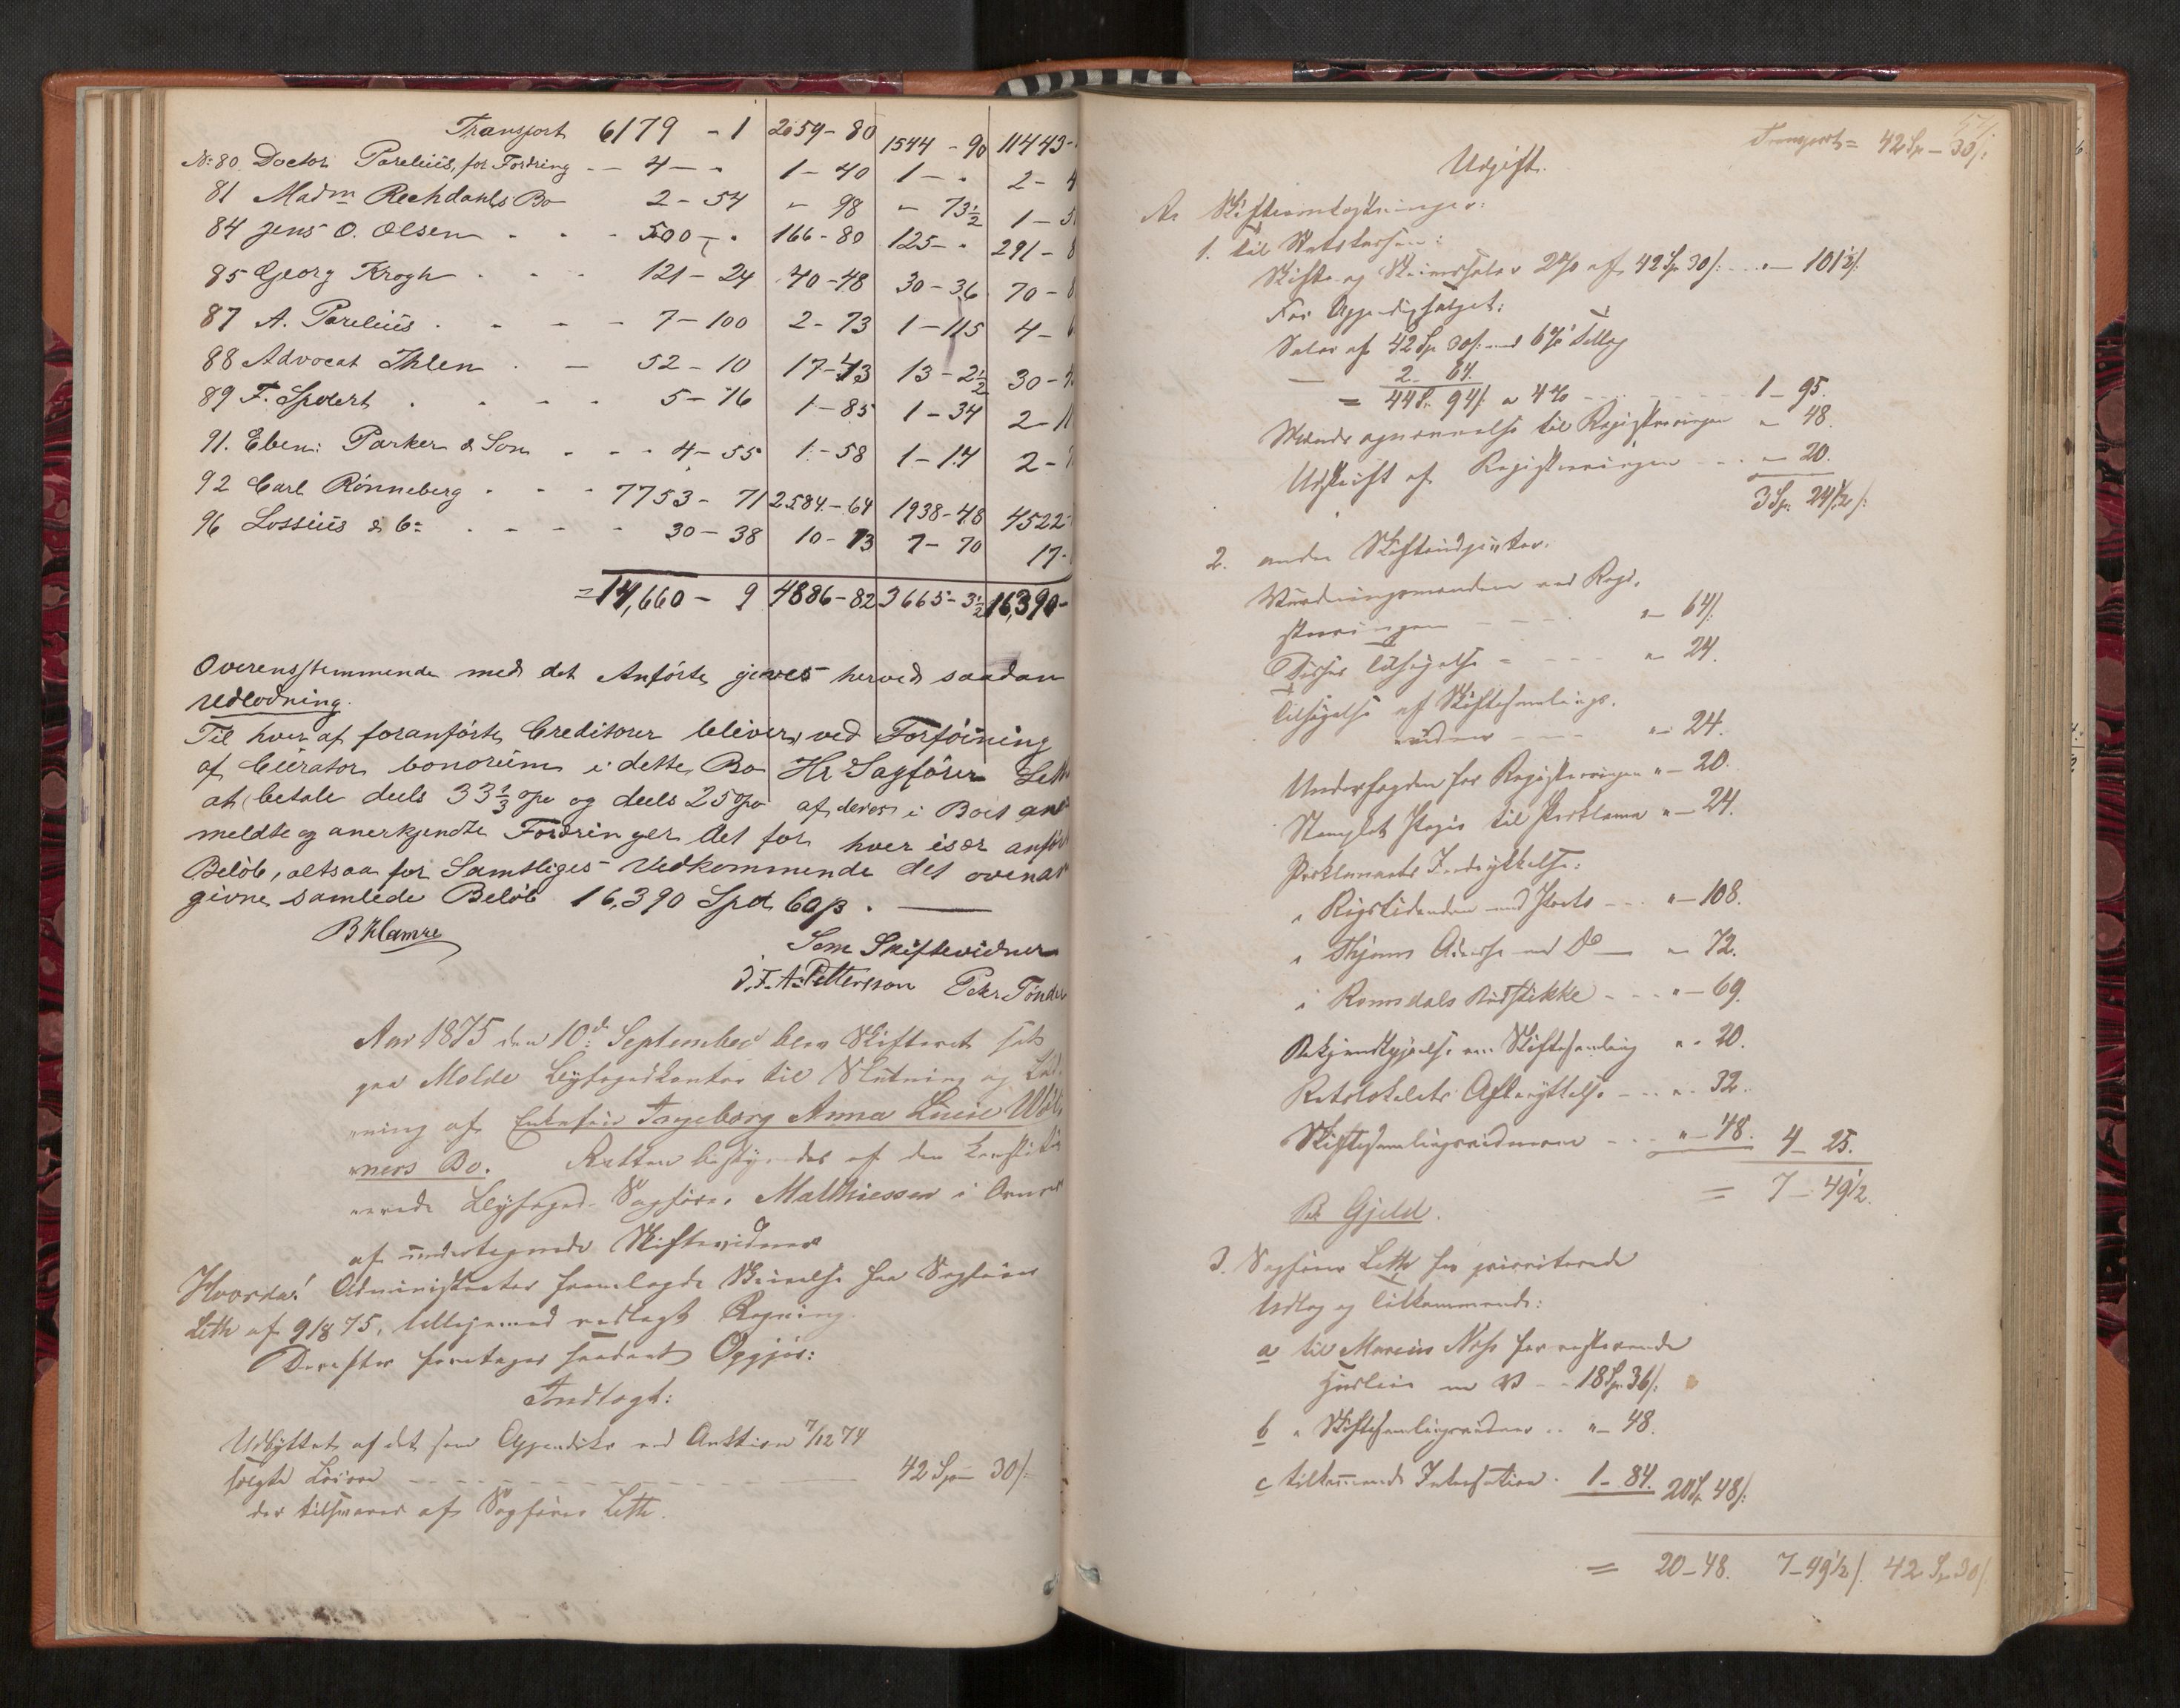 Transport 6179 - 1 2059 - 80 1544 - 90 11443 -
No. 80. Doctor Parelius, for Fordring - - 4 - " 1 - 40 1 - " 2 - 4
81 Madm Rechdahls Bo 2 - 54 " 98 " 73½ 1 - 5
84 Jens O. Olsen - - - 500 - " 166 - 80 125 - " 291 - 8
85 Georg Krogh - - - 121 - 24 40 - 48 30 - 36 70 - 8
87 A. Parelius - - - - 7 - 100 2 - 73 1 - 115 4 -
88 Advocat Ihlen - - 52 - 10 17 - 43 13 - 2½ 30 -
89 F. Spolert - - - - 5 - 76 1 - 85 1 - 34 2 - 11
91. Eben: Parker & Son - - - 4 - 55 1 - 58 1 - 14 2 -
92 Carl Rönneberg - - - 7753 - 71 2584 - 64 1938 - 48 4522 -
96 Lossius & Co - - - - 30 - 38 10 - 13 7 - 70 17 -
= 14,660 - 9 4886 - 82 3665 - 3½ 16,390 -
Overensstemmende med det Anførte gjøres herved saadan
Udlodning.
Til hver af foranførte Creditorer bliver, ved Forføining
af Curator bonorum i dette Bo Hr Sagfører Leth
at betale deels 33⅓ % og deels 25 % af deres i Boet an
meldte og anerkjendte Fordringer det for hver især anført
Beløb, altsaa for Samtliges Vedkommende det ovenan
givne samlede Beløb 16,390 Spd 60 β. —
B Hamre
Som Skiftevidner
J. F. A. Pettersson Petr Tönder
Aar 1875 den 10de September blev Skifteret sat
paa Molde Byfogedkontor til Slutning og Lud
ning af Enkefru Ingeborg Anna Lucie
ners Bo. Retten bestyredes af den konstitu
erede Byfoged Sagfører Matthiessen i Overvær
af undertegnede Skiftevidner
Hvorda! Administrator fremlagde Skrivelse fra Sagfører
Leth af 9/8 75, tilligemed vedlagt Regning.
Derefter foretages saadant Opgjør:
Indtægt:
Udbyttet af det som Appendix ved Auktion 7/12 74
solgte Løsøre - - - - - - - 42 Sp - 30 β
der tilsvares af Sagfører Leth.
57.
Transport = 42 Sp - 30 β
Udgift.
A. Skifteomkostninger:
1. til Statskassen:
Skifte og Skriversalær 2 % af 42 Sp 30 β - - " - 101½ β
For Appendixsalget:
Salær af 42 Sp 30 β med 6 % Tillæg
2 - 64.
= 44 Sp 94 β a 4 % - - - - - - 1 - 95.
Mænds opnævnelse til Registreringen " - 48.
Udskrift af Registreringen - - " - 20.
3 Sp 24½ β
2. andre Skifteudgifter.
Vurderingsmændene ved Regi-
streringen - - - - " - 64 β
Disses Tilsigelse - - - - " 24.
Tilsigelse af Skiftesamlings-
vidner - - - " - 24.
Underfogden for Registreringen " - 20.
Stemplet Papir til Proklama " - 24.
Proklamaets Indrykkelse:
i Rigstidenden med Porto - - " - 108.
i Thjems Adresse med Do — " - 72.
i Romsdals Budstikke - - - " - 69.
Bekjendtgjørelse om Skiftesamling " - 20.
Retslokalets Afbenyttelse - - " - 32.
Skiftesamlingsvidnerne - - - " - 48. 4 - 25.
= 7 - 49½.
B. Gjeld.
3. Sagfører Leth for prioriterede
Udlæg og Tilkommende:
a til Marcus Næs for resterende
Husleie - - 18 Sp 36 β
b " Skiftesamlingsvidner - - " - 48.
c tilkommende - 1 - 84. 20 Sp 48 β
= 20 - 48. 7 - 49½ β 42 Sp 30 β